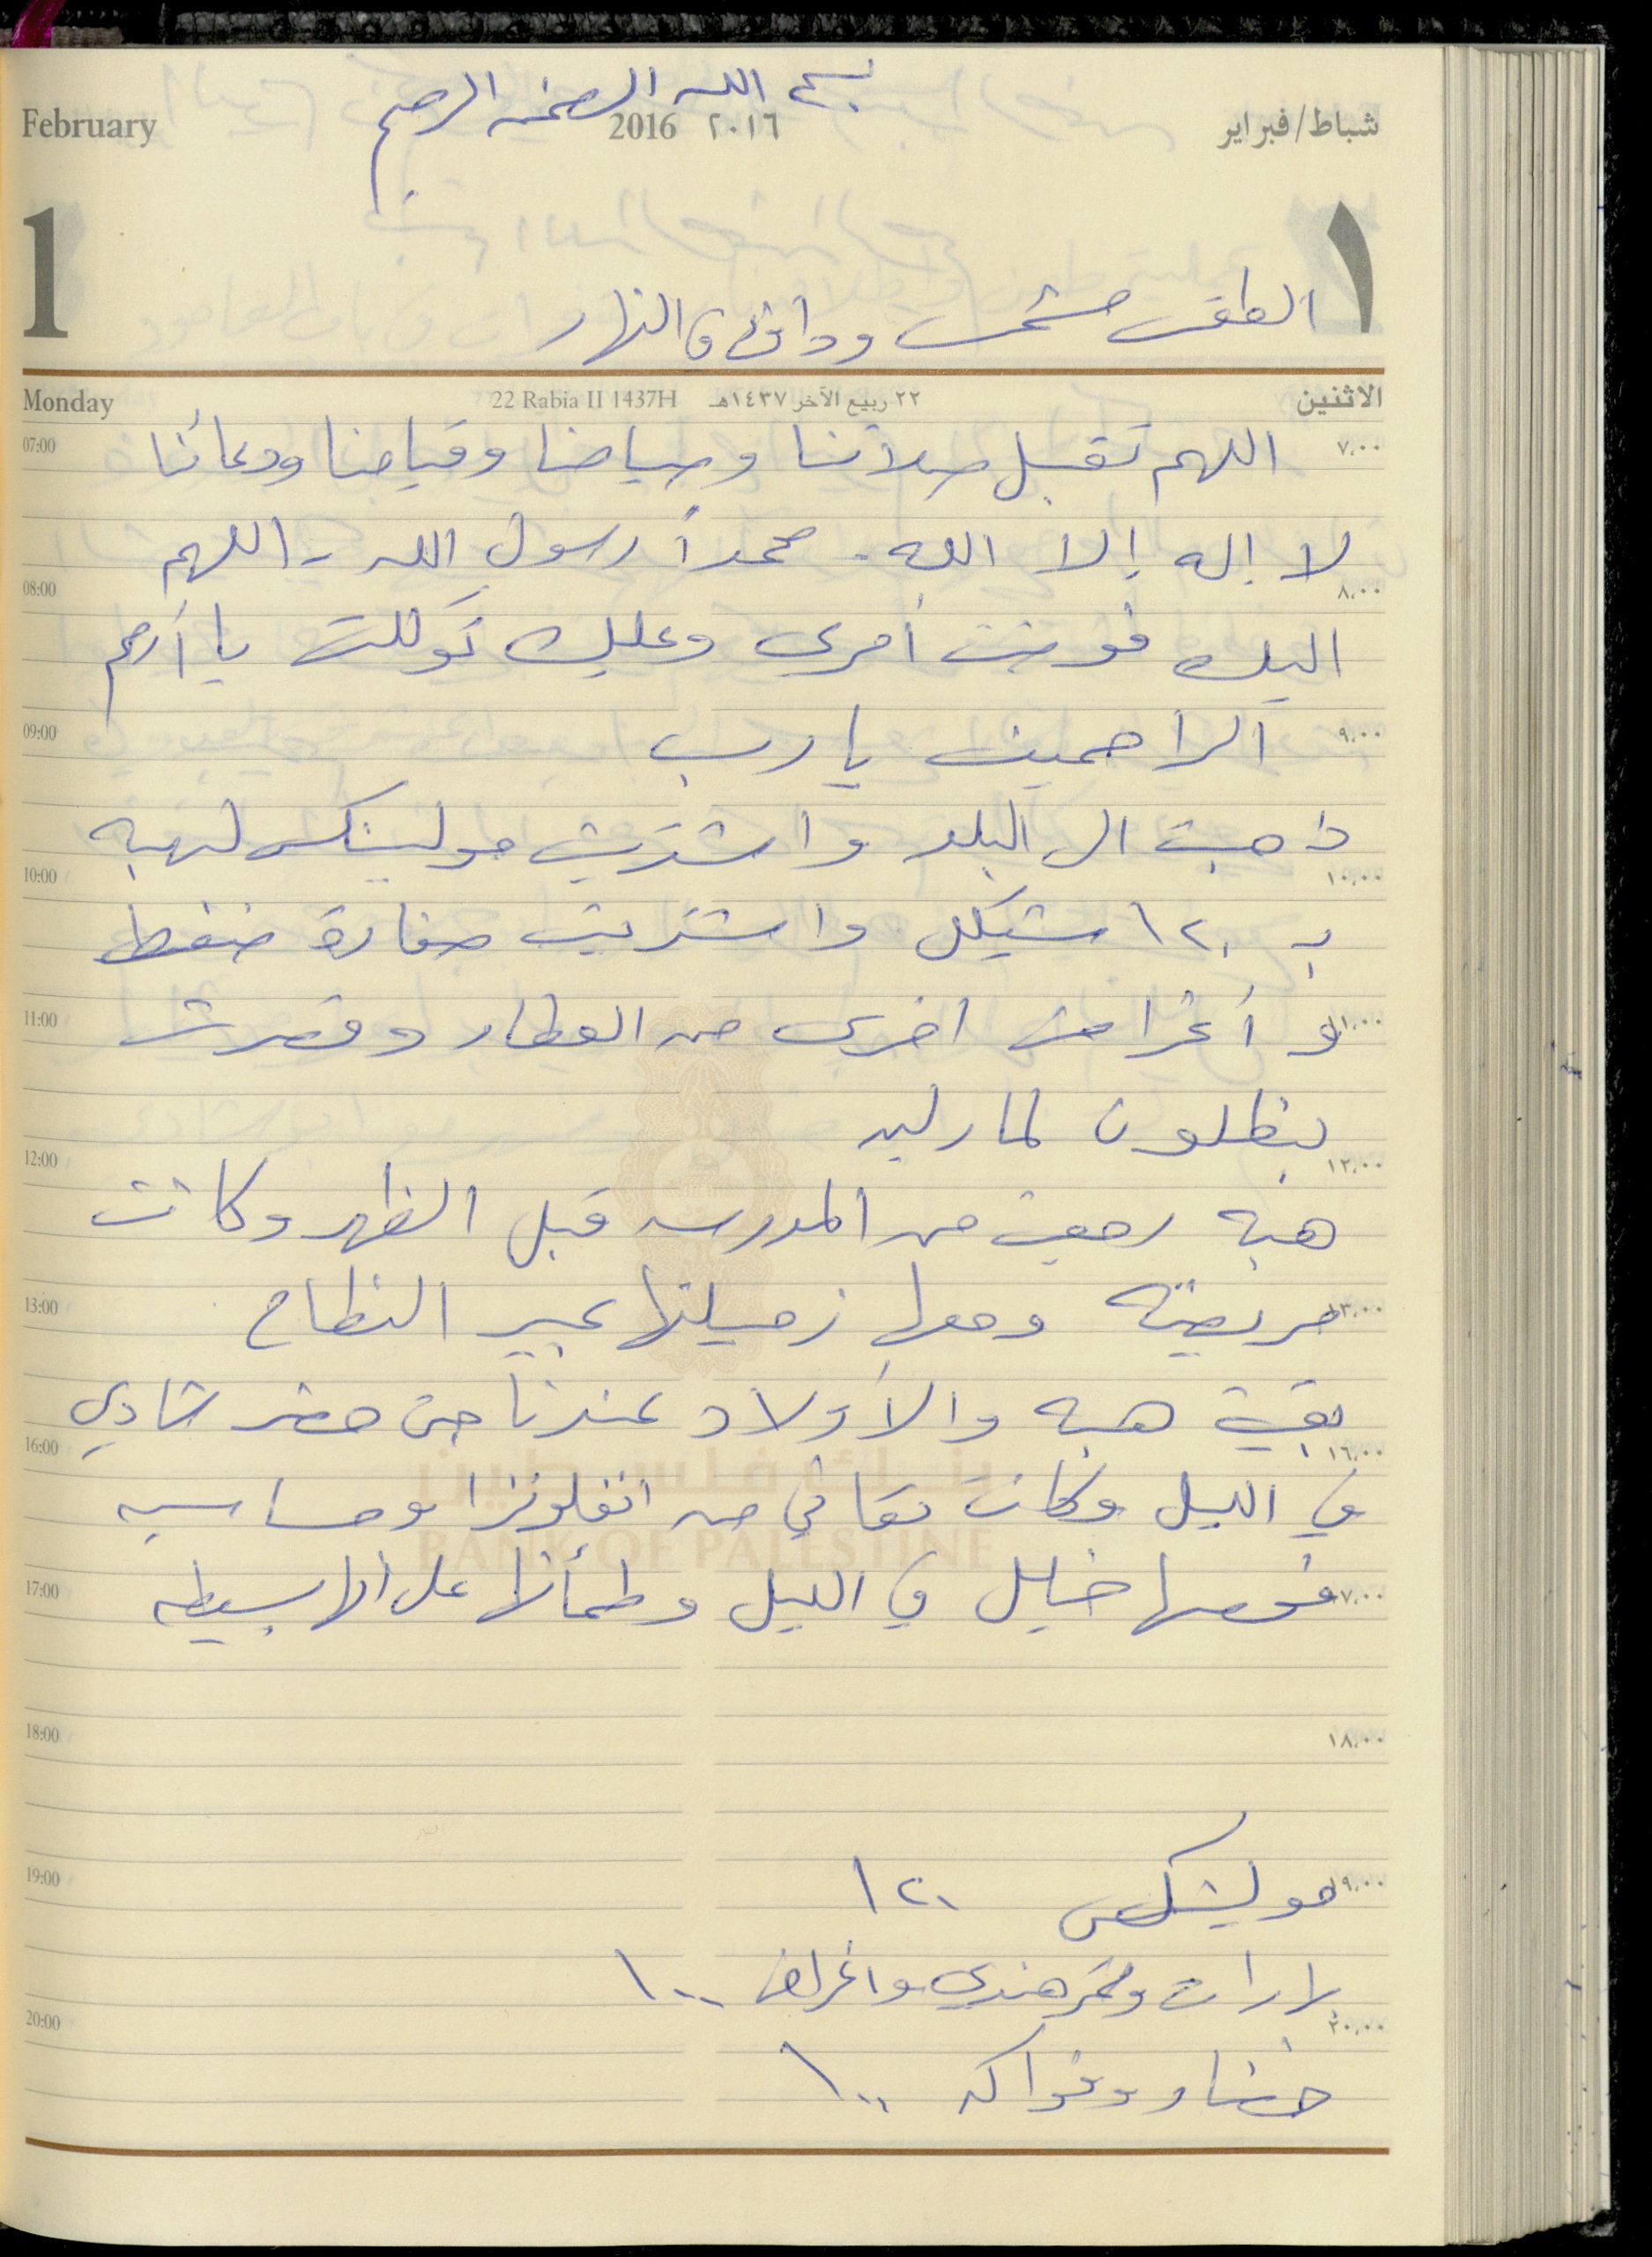 بسم الله الرحمن الرحيم
February
2016 ٢٠١٦
شباط/فبراير
1
١
الطقس مشمس ودافئ في النهار
Monday
22 Rabia II 1437H ٢٢ ربيع الآخر ١٤٣٧هـ
الاثنين
07:00 ٧,٠٠
اللهم تقبل صلاتنا وصيامنا وقيامنا ودعائنا
لا إله إلا الله. محمداً رسول الله - اللهم
08:00 ٨,٠٠
اليك فوضت أمري وعليك توكلت يا أرحم
09:00 ٩,٠٠
الراحمين يا رب
ذهبت الى البلد واشتريت مولينكس لهبه
10:00 ١٠,٠٠
بـ ١٢٠ شيكل واشتريت صفارة ضغط
11:00 ١١,٠٠
و أغراض اخرى من العطار وقصرت
بنطلون لمارلين
12:00 ١٢,٠٠
هبه رجعت من المدرسه قبل الظهر وكانت
13:00 ١٣,٠٠
مريضه ومعها زميلتها عبير النطاح
بقيت هبه والأولاد عندنا حتى حضر شادي
16:00 ١٦,٠٠
في الليل وكانت تعاني من انفلونزا وحساسيه
بنك فلسطين
BANK OF PALESTINE
17:00 ١٧,٠٠
فحصها خليل في الليل وطمأنها على انها بسيطه
18:00 ١٨,٠٠
19:00 ١٩,٠٠
مولينكس ١٢٠
بهارات وتمر هندي واغراض ١٠٠
20:00 ٢٠,٠٠
خضار وفواكه ١٠٠